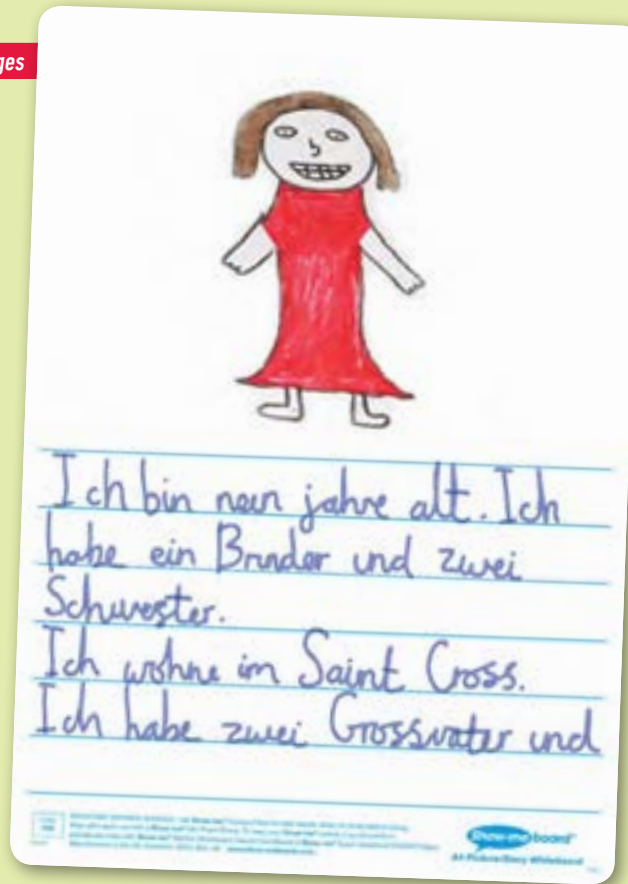 ges
Ich bin neun jahre alt. Ich
habe ein Bruder und zwei
Schwester.
Ich wohne im Saint Cross.
Ich habe zwei Grossvater und
Show-me board
A4 Picture/Story Whiteboard